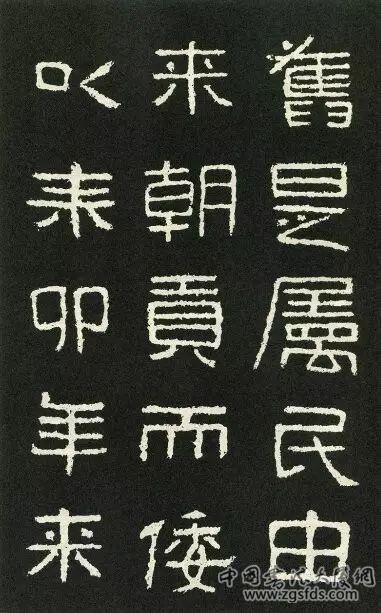 舊是屬民由
来朝貢而倭
以辛卯年来
www.zgsfds.com